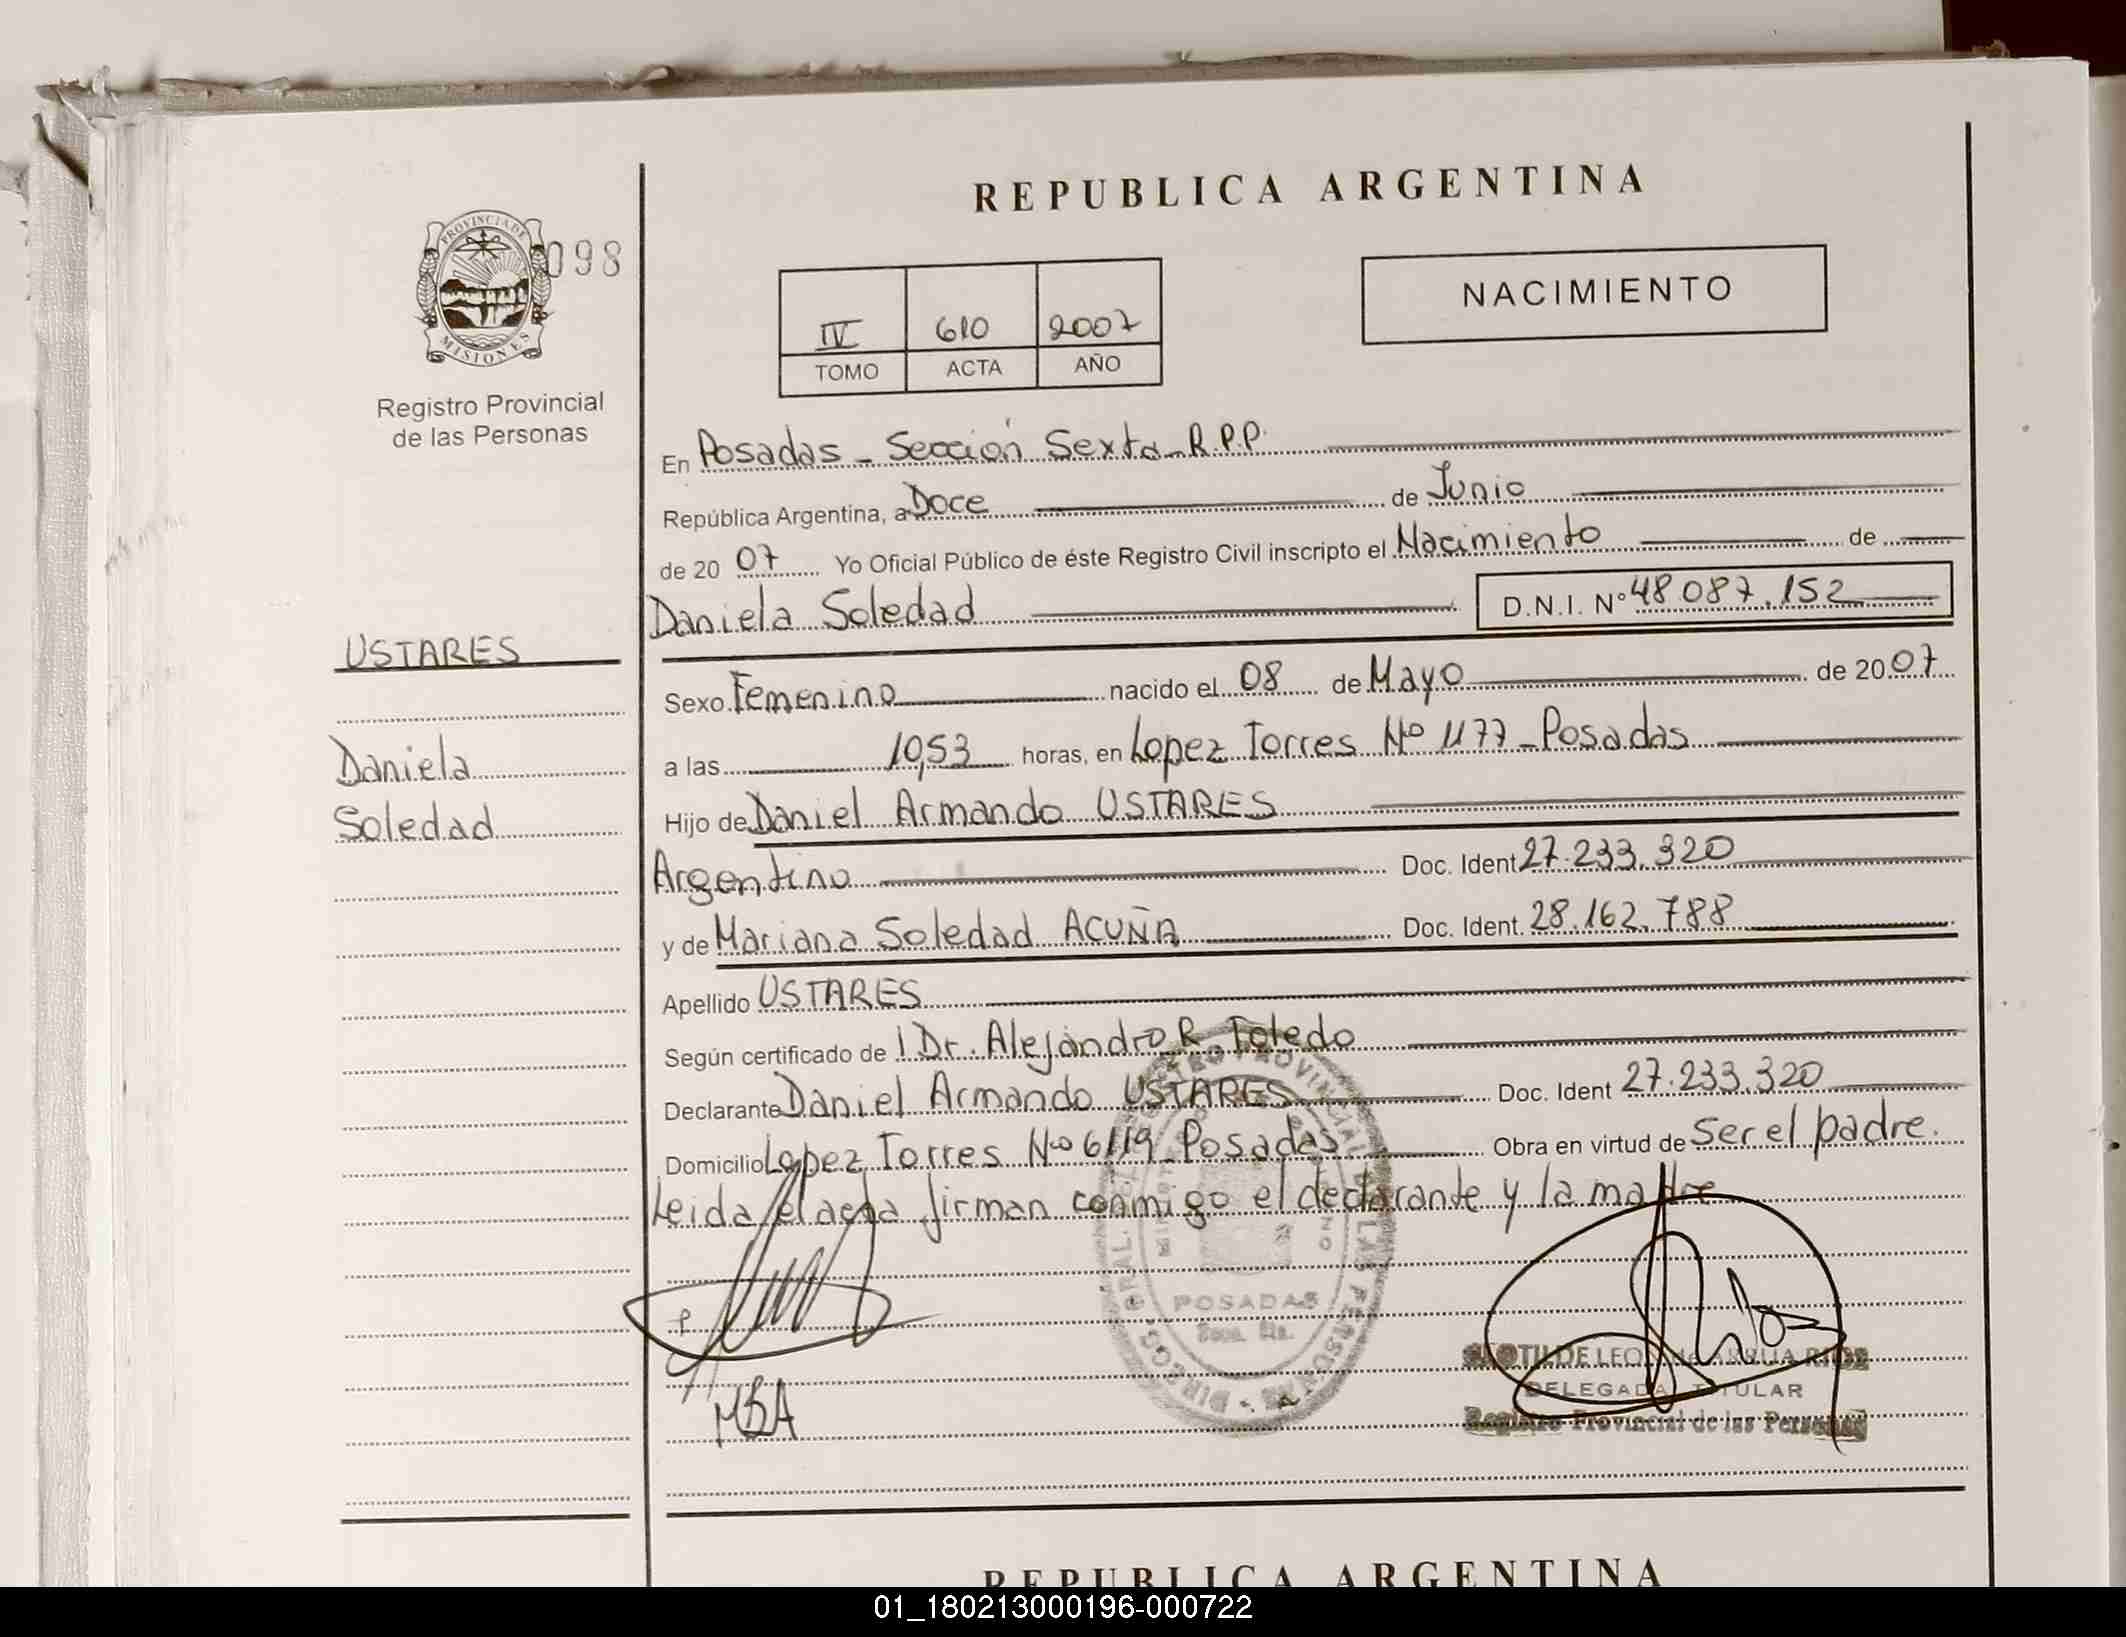 REPUBLICA ARGENTINA
PROVINCIA DE
MISIONES
098
Registro Provincial
de las Personas
NACIMIENTO
IV 610 2007
TOMO ACTA AÑO
En Posadas - Sección Sexta - R.P.P.
República Argentina, a Doce de Junio
de 20 07 Yo Oficial Público de éste Registro Civil inscripto el Nacimiento de
Daniela Soledad D.N.I. Nº 48.087.152
USTARES
Daniela
Soledad
Sexo Femenino nacido el 08 de Mayo de 20 07
a las 10,53 horas, en Lopez Torres Nº 1177 - Posadas
Hijo de Daniel Armando USTARES
Argentino Doc. Ident 27.233.320
y de Mariana Soledad ACUÑA Doc. Ident. 28.162.788
Apellido USTARES
Según certificado de l Dr. Alejandro R. Toledo
Declarante Daniel Armando USTARES Doc. Ident 27.233.320
Domicilio Lopez Torres Nº 6119 - Posadas Obra en virtud de Ser el padre.
Leida el acta firman conmigo el declarante y la madre
POSADAS
MSA
CLOTILDE LEON de ARRUA RIOS
DELEGADA TITULAR
Registro Provincial de las Personas
REPUBLICA ARGENTINA
01_180213000196-000722